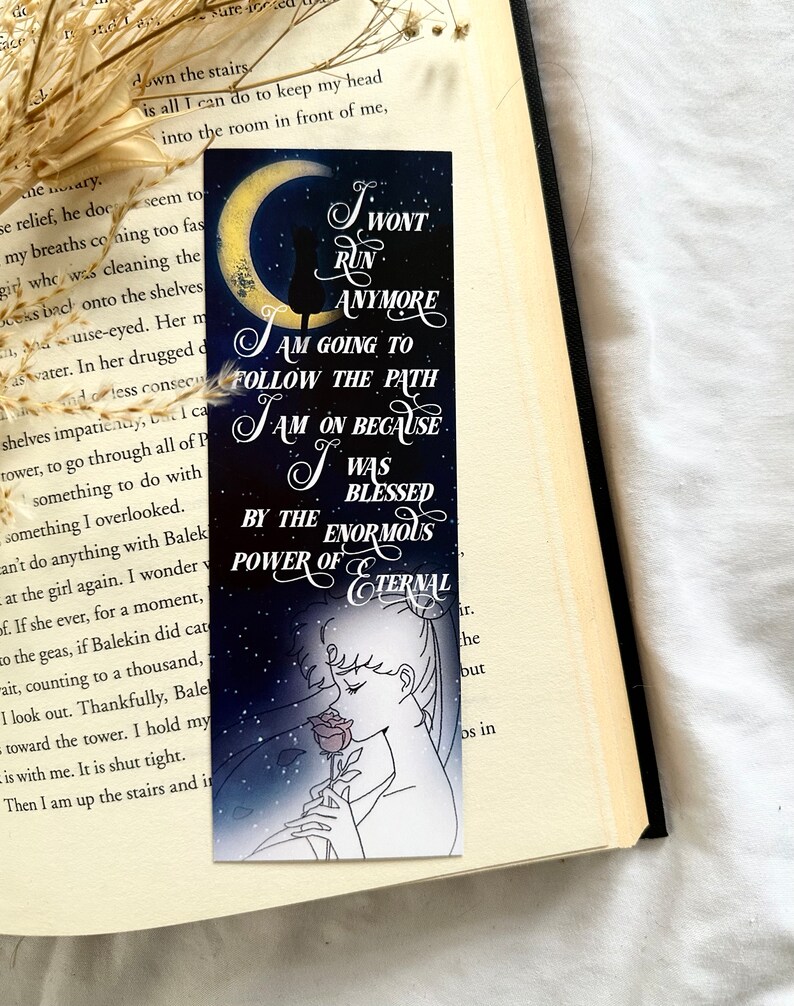 down the stairs.
is all I can do to keep my head
into the room in front of me,
seem to
se relief, he
my breaths coming too fas
girl who was cleaning the
back onto the shelves.
In her drugged d
shelves impatiently, but I ca
tower, to go through all of P
something to do with
something I overlooked.
can't do anything with Balekin
at the girl again. I wonder w
of. If she ever, for a moment,
to the geas, if Balekin did catc
wait, counting to a thousand,
I look out. Thankfully, Balel
toward the tower. I hold my
is with me. It is shut tight.
Then I am up the stairs and in
I WONT
RUN
ANYMORE
I AM GOING TO
FOLLOW THE PATH
I AM ON BECAUSE
I WAS
BLESSED
BY THE ENORMOUS
POWER OF ETERNAL
ir.
the
but
bs in